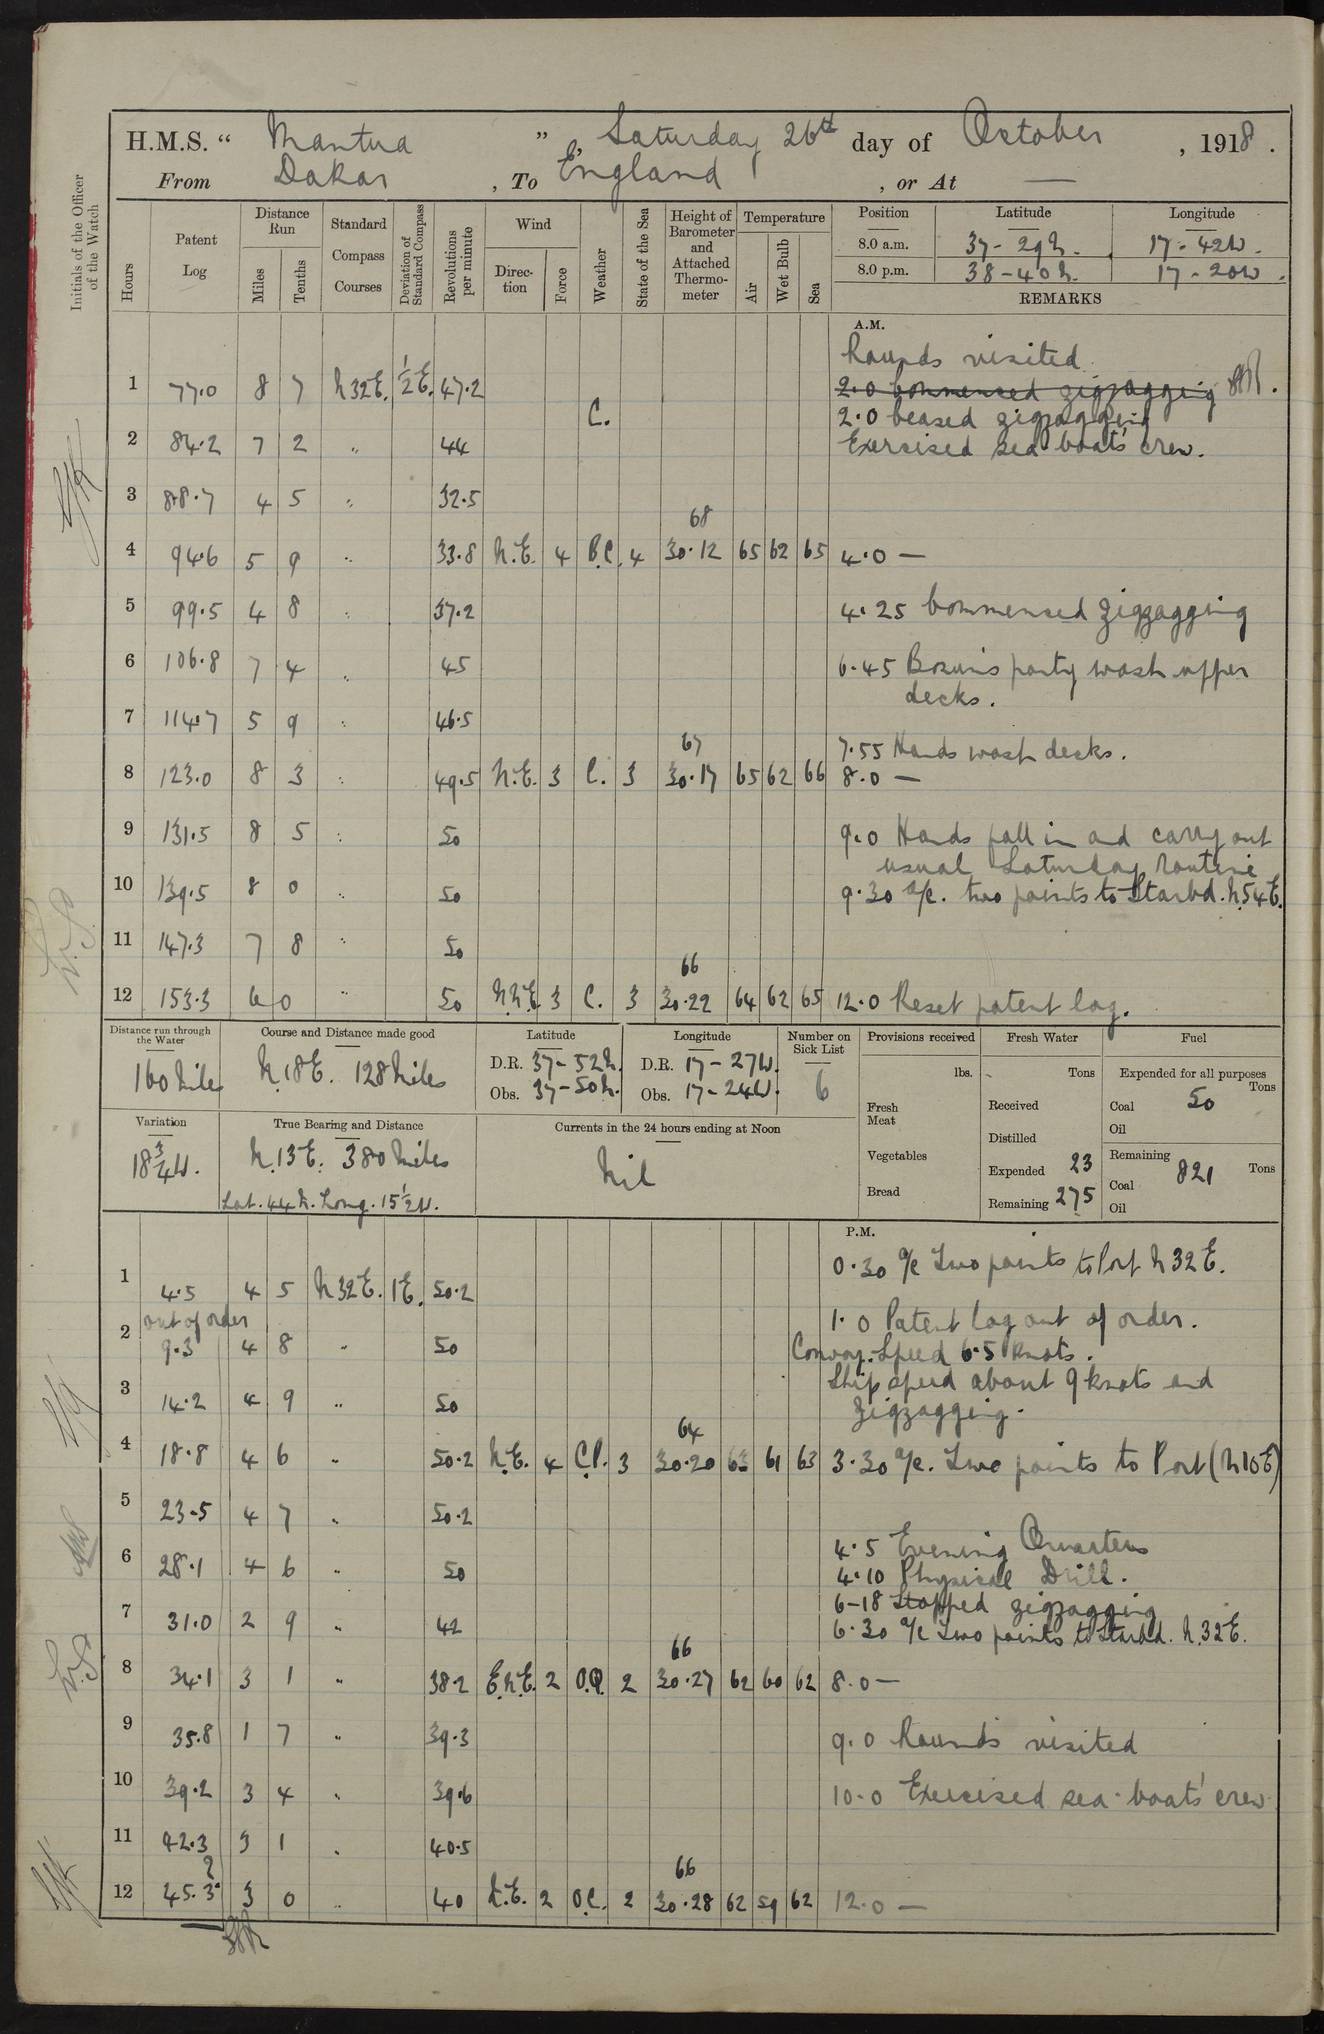 H.M.S. “ Mantua ”, Saturday 26th day of October, 1918.
From Dakar, To England, or At —
Initials of the Officer of the Watch
Hours
Patent Log
Distance Run
Miles
Tenths
Standard Compass Courses
Deviation of Standard Compass
Revolutions per minute
Wind
Direction
Force
Weather
State of the Sea
Height of Barometer and Attached Thermometer
Temperature
Air
Wet Bulb
Sea
Position Latitude Longitude
8.0 a.m. 37-29N. 17-42W.
8.0 p.m. 38-40N. 17-20W.
REMARKS
A.M.
Rounds visited
1 77.0 8 7 N32E. 1/2E. 47.2 2.0 Commenced zigzagging
C. 2.0 Ceased zigzagging
2 84.2 7 2 " 44 Exercised sea boats' crew.
3 88.7 4 5 " 32.5
68
4 94.6 5 9 " 33.8 N.E. 4 B.C. 4 30.12 65 62 65 4.0 —
5 99.5 4 8 " 37.2 4.25 Commenced zigzagging
6 106.8 7 4 " 45 6.45 Bosun's party wash upper
decks.
7 114.7 5 9 " 46.5
67 7.55 Hands wash decks.
8 123.0 8 3 " 49.5 N.E. 3 C. 3 30.17 65 62 66 8.0 —
9 131.5 8 5 " 50 9.0 Hands fall in and carry out
usual Saturday routine
10 139.5 8 0 " 50 9.30 a/c. two points to Starbd. N.54E.
11 147.3 7 8 " 50
66
12 153.3 6 0 " 50 N.N.E. 3 C. 3 30.22 64 62 65 12.0 Reset patent log.
Distance run through the Water
160 Miles
Course and Distance made good
N.18E. 128 Miles
Latitude
D.R. 37-52N.
Obs. 37-50N.
Longitude
D.R. 17-27W.
Obs. 17-24W.
Number on Sick List
6
Provisions received
lbs.
Fresh Meat
Vegetables
Bread
Fresh Water
Tons
Received
Distilled
Expended 23
Remaining 275
Fuel
Expended for all purposes
Tons
Coal 50
Oil
Remaining
Coal 821 Tons
Oil
Variation
18 3/4W.
True Bearing and Distance
N.13E. 380 Miles
Lat. 44N. Long. 15 1/2W.
Currents in the 24 hours ending at Noon
Nil
P.M.
0.30 a/c two points to Port N32E.
1 4.5 4 5 N32E. 1E. 50.2
out of order 1.0 Patent log out of order.
2 9.3 4 8 " 50 Convoy. Speed 6.5 knots.
Ship speed about 9 knots and
3 14.2 4 9 " 50 zigzagging.
64
4 18.8 4 6 " 50.2 N.E. 4 C.P. 3 30.20 63 61 63 3.30 a/c. Two points to Port (N10E)
5 23.5 4 7 " 50.2
4.5 Evening Quarters
6 28.1 4 6 " 50 4.10 Physical Drill.
6-18 Stopped zigzagging
7 31.0 2 9 " 42 6.30 a/c two points to Starbd. N.32E.
66
8 34.1 3 1 " 38.2 E.N.E. 2 2 30.27 62 60 62 8.0 —
9 35.8 1 7 " 39.3 9.0 Rounds visited
10 39.2 3 4 " 39.6 10.0 Exercised sea-boats' crew
11 42.3 3 1 " 40.5
66
12 45.3 3 0 " 40 N.E. 2 O.C. 2 30.28 62 59 62 12.0 —